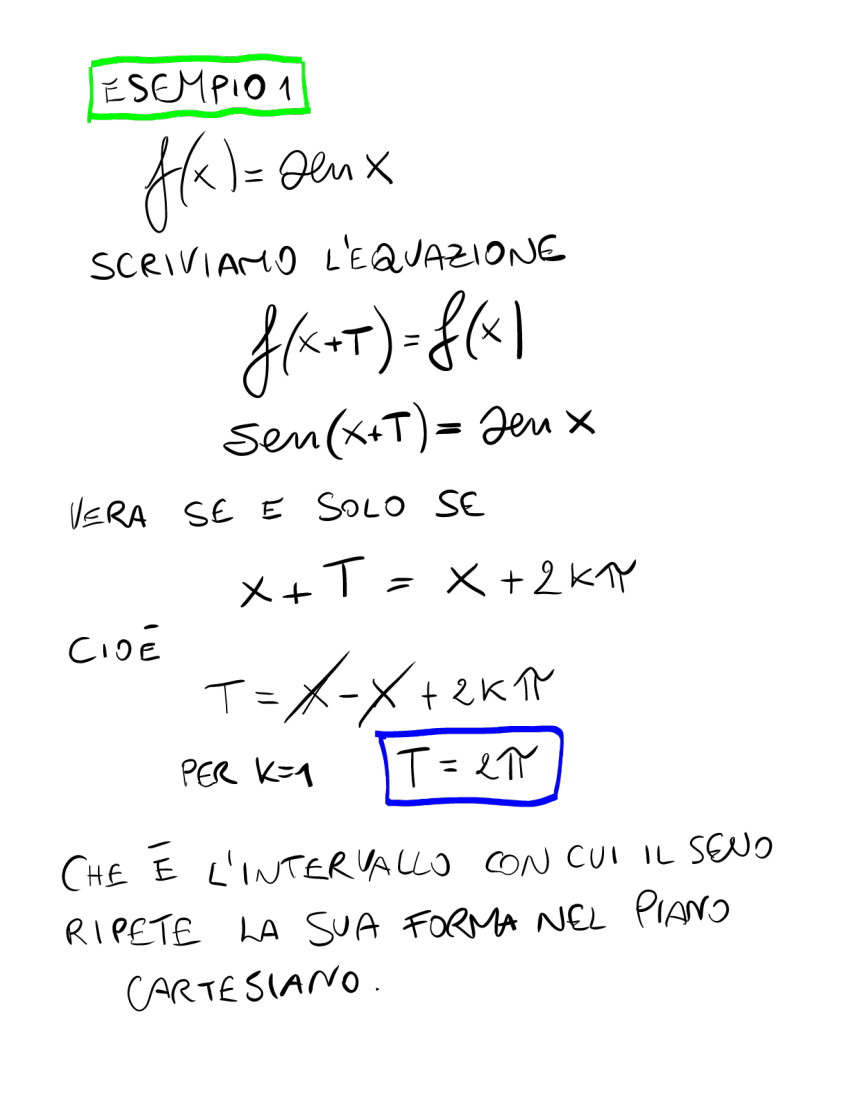 ESEMPIO 1
f(x)= sen x
SCRIVIAMO L'EQUAZIONE
f(x+T)=f(x)
sen(x+T)= sen x
VERA SE E SOLO SE
x+T = x+2kπ
CIOÈ
T=x-x+2kπ
PER K=1 T=2π
CHE È L'INTERVALLO CON CUI IL SENO
RIPETE LA SUA FORMA NEL PIANO
CARTESIANO.